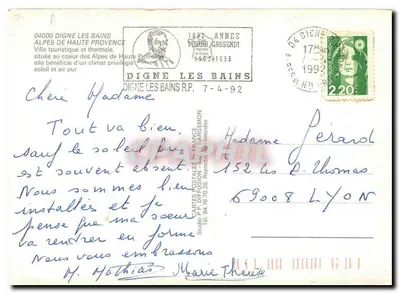 04000 DIGNE LES BAINS
ALPES DE HAUTE PROVENCE
Ville touristique et thermale,
située au coeur des Alpes de Haute
elle bénéficie d'un climat privilégié
soleil et air pur
1992 ANNEE
PIERRE GASSENDI
DIGNE LES BAINS
DIGNE LES BAINS R.P. 7-4-92
04 DIGNE
2,20
Chère Madame
Tout va bien,
sauf le soleil qui
est souvent absent.
Nous sommes bien
installés et je
pense que ma sœur
va rentrer en forme
Nous vous embrassons
M. Mathias Marie Thérèse
CARTES POSTALES DE FRANCE
Madame Pérard
152 rue A. Thomas
69008 LYON